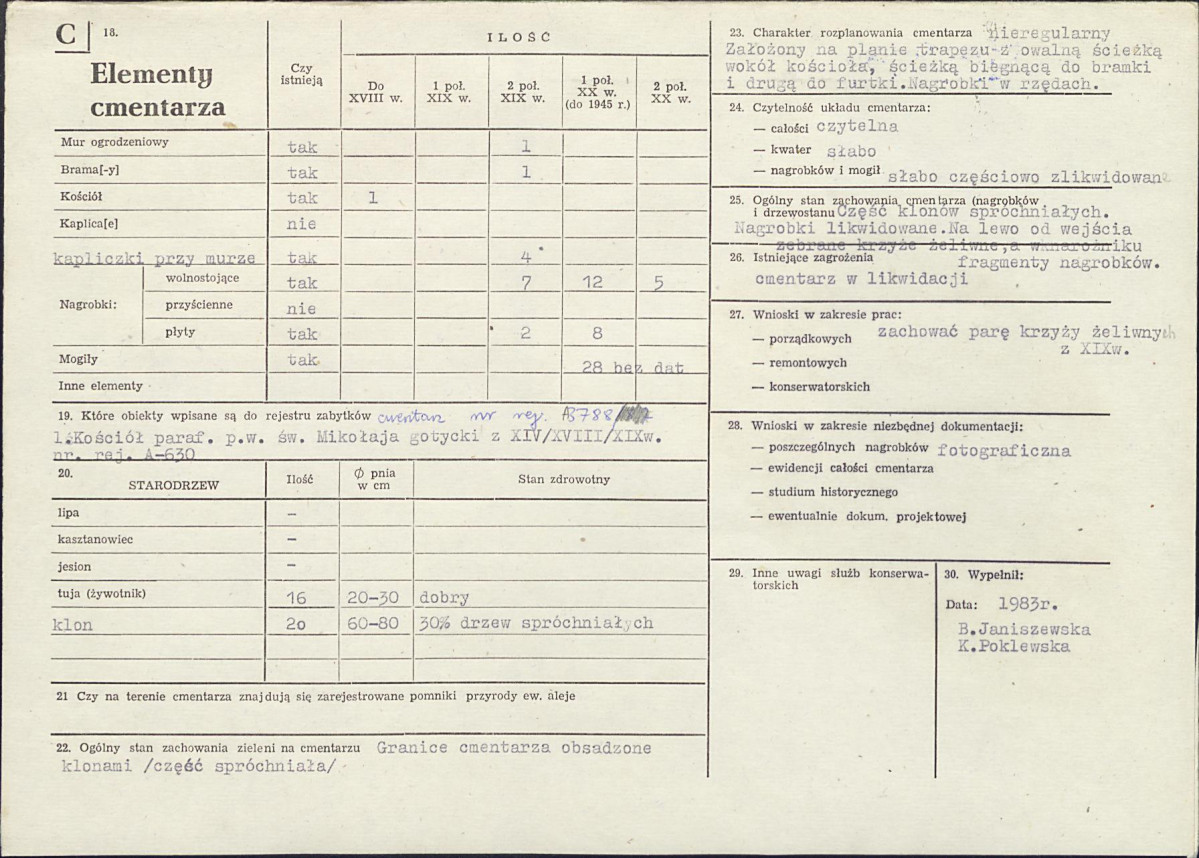 C 18.
Elementy
cmentarza
Czy
istnieją
ILOŚĆ
Do
XVIII w.
1 poł.
XIX w.
2 poł.
XIX w.
1 poł.
XX w.
(do 1945 r.)
2 poł.
XX w.
Mur ogrodzeniowy tak 1
Brama[-y] tak 1
Kościół tak 1
Kaplica[e] nie
kapliczki przy murze tak 4
Nagrobki:
wolnostojące tak 7 12 5
przyścienne nie
płyty tak 2 8
Mogiły tak 28 bez dat
Inne elementy
19. Które obiekty wpisane są do rejestru zabytków cmentarz nr rej. A3788
1.Kościół paraf. p.w. św. Mikołaja gotycki z XIV/XVIII/XIXw.
nr. rej. A-630
20.
STARODRZEW
Ilość
Ø pnia
w cm
Stan zdrowotny
lipa –
kasztanowiec –
jesion –
tuja (żywotnik) 16 20-30 dobry
klon 2o 60-80 30% drzew spróchniałych
21 Czy na terenie cmentarza znajdują się zarejestrowane pomniki przyrody ew. aleje
22. Ogólny stan zachowania zieleni na cmentarzu Granice cmentarza obsadzone
klonami /część spróchniała/
23. Charakter rozplanowania cmentarza nieregularny
Założony na planie trapezu z owalną ścieżką
wokół kościoła, ścieżką biegnącą do bramki
i drugą do furtki.Nagrobki w rzędach.
24. Czytelność układu cmentarza:
— całości czytelna
— kwater słabo
— nagrobków i mogił słabo częściowo zlikwidowane
25. Ogólny stan zachowania cmentarza (nagrobków
i drzewostanu Część klonów spróchniałych.
Nagrobki likwidowane.Na lewo od wejścia
zebrane krzyże żeliwne,a w narożniku
26. Istniejące zagrożenia fragmenty nagrobków.
cmentarz w likwidacji
27. Wnioski w zakresie prac:
— porządkowych zachować parę krzyży żeliwnych
z XIXw.
— remontowych
— konserwatorskich
28. Wnioski w zakresie niezbędnej dokumentacji:
— poszczególnych nagrobków fotograficzna
— ewidencji całości cmentarza
— studium historycznego
— ewentualnie dokum. projektowej
29. Inne uwagi służb konserwa-
torskich
30. Wypełnił:
Data: 1983r.
B.Janiszewska
K.Poklewska